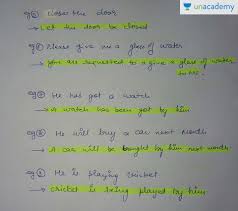 unacademy
eg ① Close the door
→ Let the door be closed
eg ② Please give me a glass of water
→ You are requested to a give a glass of water
to me.
eg ③ He has got a watch
→ A watch has been got by him
eg ③ He will buy a car next month
→ A car will be bought by him next month.
eg ① He is playing cricket
→ cricket is being played by him